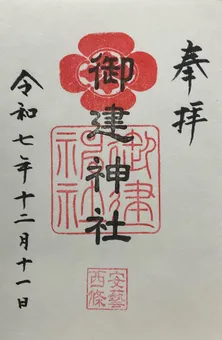 奉拝
御建神社
御建神社
安藝西條
令和七年十二月十一日